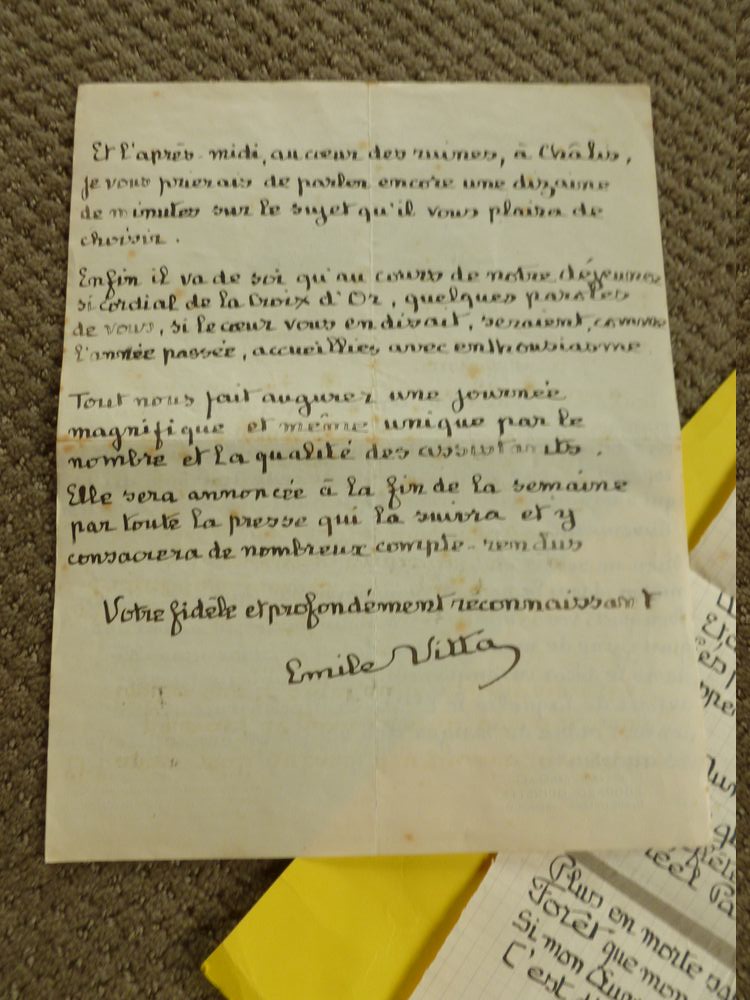 Et l'après-midi, au cœur des ruines, à Châlis,
je vous prierais de parler encore une dizaine
de minutes sur le sujet qu'il vous plaira de
choisir.
Enfin il va de soi qu'au cours de notre déjeuner
si cordial de la Croix d'Or, quelques paroles
de vous, si le cœur vous en disait, seraient, comme
l'année passée, accueillies avec enthousiasme
Tout nous fait augurer une journée
magnifique et même unique par le
nombre et la qualité des assistants.
Elle sera annoncée à la fin de la semaine
par toute la presse qui la suivra et y
consacrera de nombreux compte-rendus
Votre fidèle et profondément reconnaissant
Emile Vitta
Plus en morte
Forêt que mon
Si mon
C'est